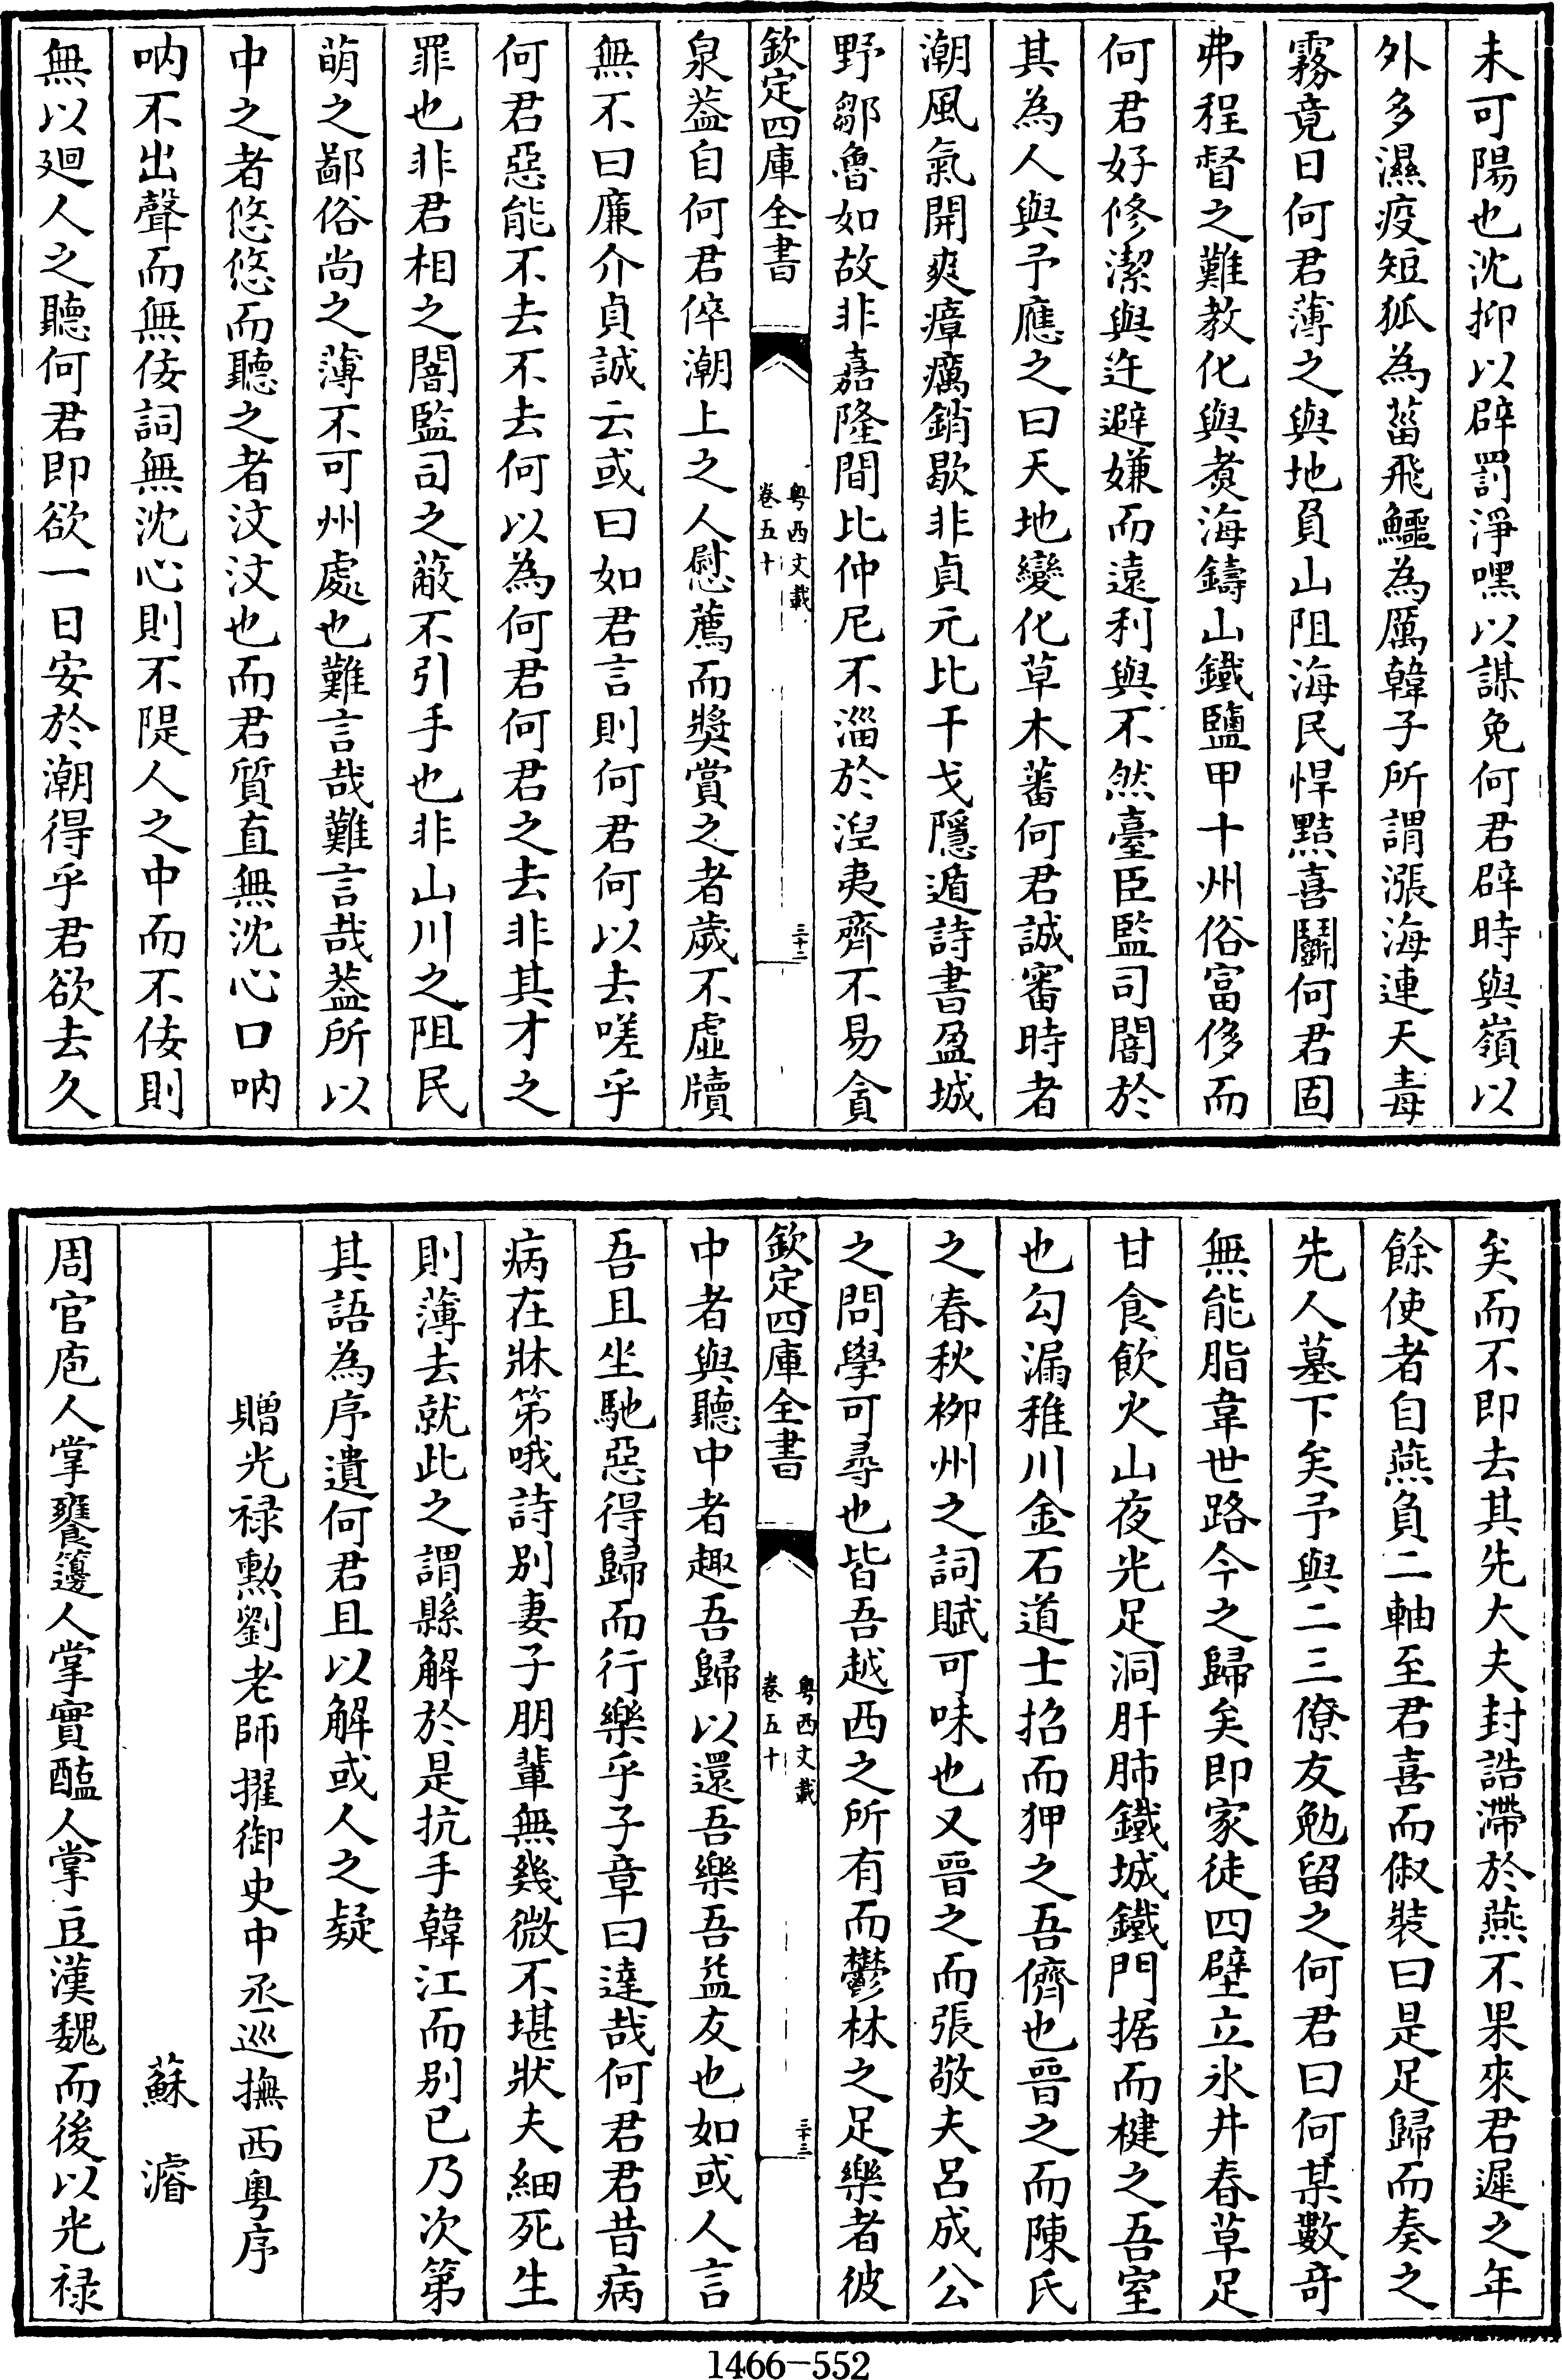 未可陽也沈抑以辟罰淨嘿以謀免何君辟時與嶺以
外多濕疫短狐為菑飛鱷為厲韓子所謂漲海連天毒
霧竟日何君薄之與地負山阻海民悍黠喜鬭何君固
弗程督之難教化與煑海鑄山鐵鹽甲十州俗富侈而
何君好修潔與迕避嫌而遠利與不然臺臣監司闇於
其為人與予應之曰天地變化草木蕃何君誠審時者
潮風氣開爽瘴癘銷歇非貞元比干戈隱遁詩書盈城
野鄒魯如故非嘉隆間比仲尼不淄於涅夷齊不易貪
欽定四庫全書
粤西文載
卷五十
三十二
泉葢自何君倅潮上之人慰薦而奬賞之者歲不虛牘
無不曰廉介貞誠云或曰如君言則何君何以去嗟乎
何君惡能不去不去何以為何君何君之去非其才之
罪也非君相之闇監司之蔽不引手也非山川之阻民
萌之鄙俗尚之薄不可州處也難言哉難言哉葢所以
中之者悠悠而聽之者汶汶也而君質直無沈心口吶
吶不出聲而無佞詞無沈心則不隄人之中而不佞則
無以廻人之聽何君即欲一日安於潮得乎君欲去久
矣而不即去其先大夫封誥滯於燕不果來君遲之年
餘使者自燕負二軸至君喜而俶裝曰是足歸而奏之
先人墓下矣予與二三僚友勉留之何君曰何某數奇
無能脂韋世路今之歸矣即家徒四壁立氷井春草足
甘食飲火山夜光足洞肝肺鐵城鐵門据而楗之吾室
也勾漏稚川金石道士招而狎之吾儕也晉之而陳氏
之春秋栁州之詞賦可味也又晉之而張敬夫呂成公
之問學可尋也皆吾越西之所有而鬱林之足樂者彼
欽定四庫全書
粤西文載
卷五十
三十三
中者與聽中者趣吾歸以還吾樂吾益友也如或人言
吾且坐馳惡得歸而行樂乎子章曰達哉何君君昔病
病在牀笫哦詩别妻子朋輩無幾微不堪狀夫細死生
則薄去就此之謂縣解於是抗手韓江而别已乃次第
其語為序遺何君且以解或人之疑
贈光禄勲劉老師擢御史中丞巡撫西粤序
蘇濬
周官庖人掌饔籩人掌實醢人掌豆漢魏而後以光禄
1466-552